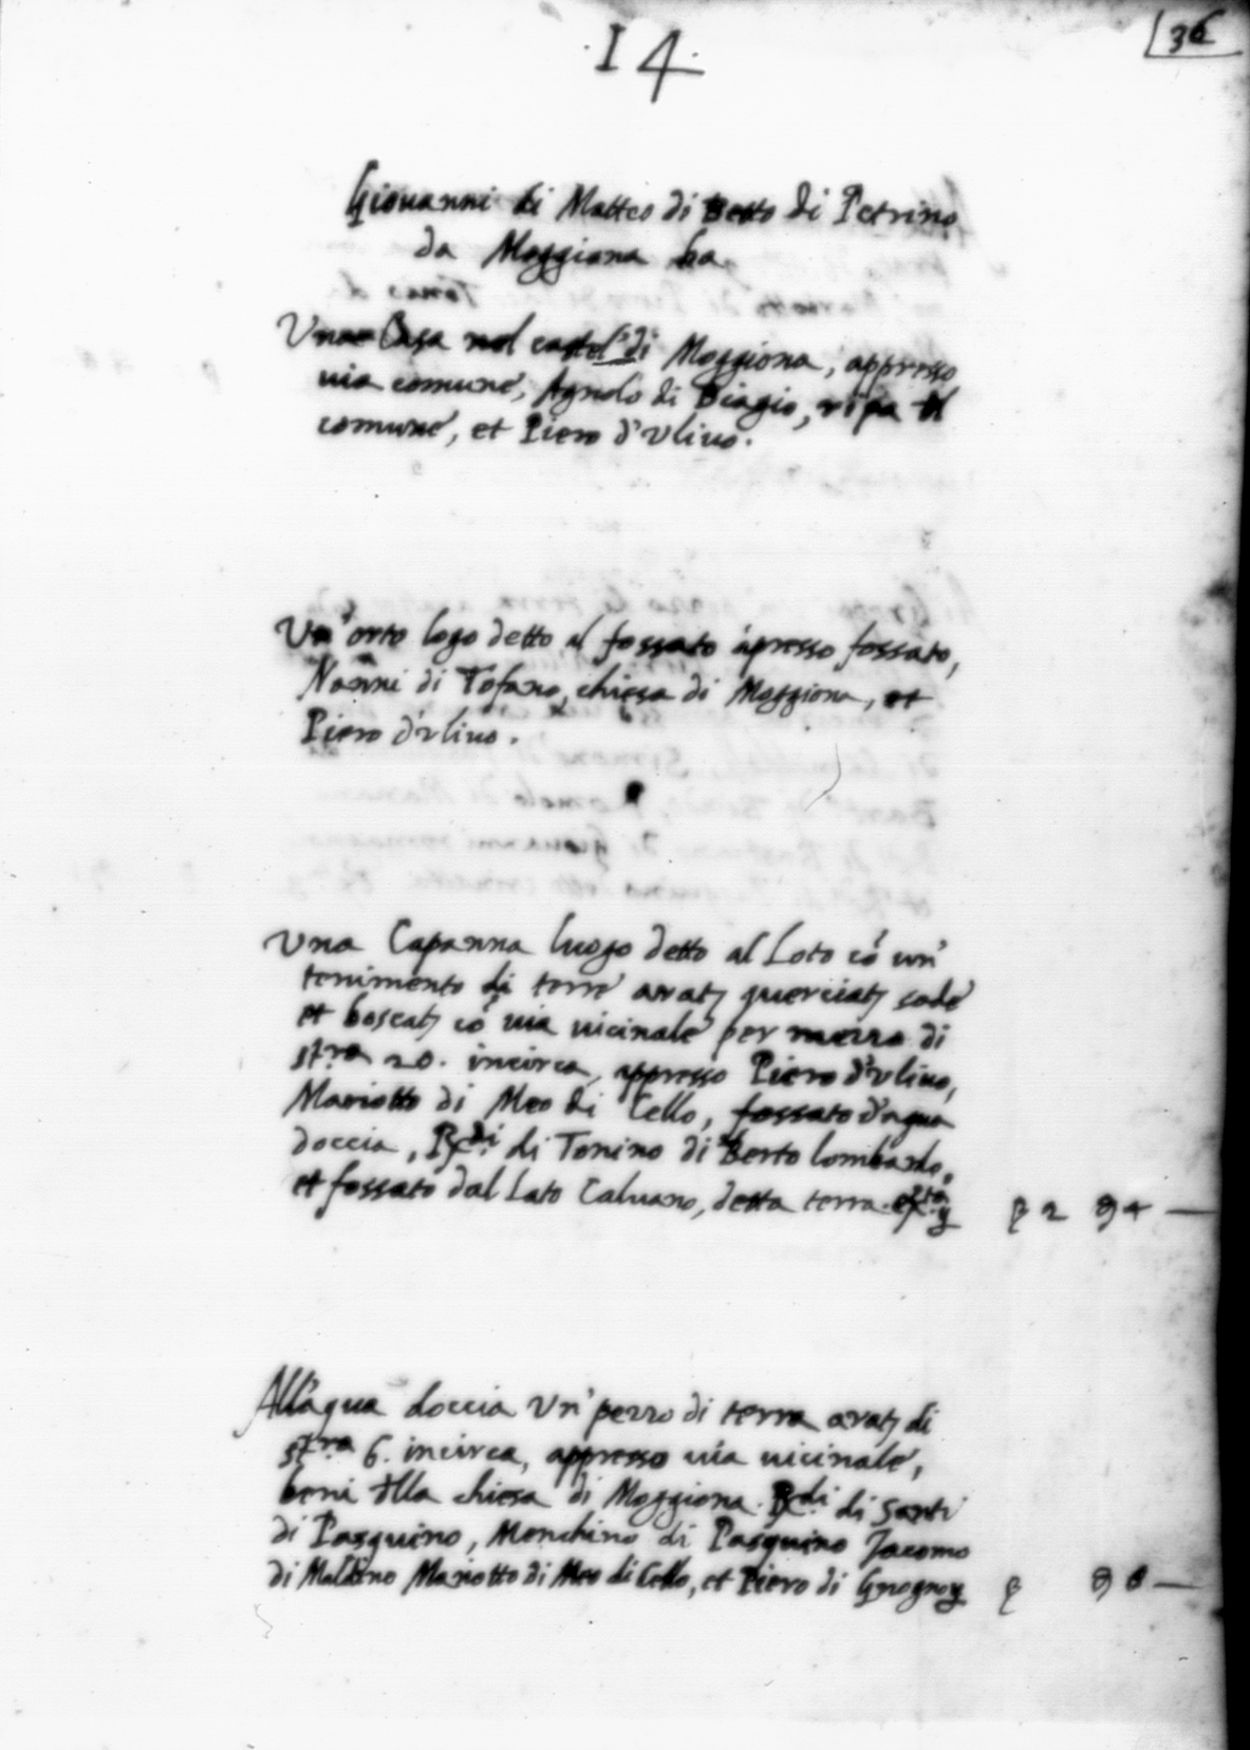 ·14·
36
Giouanni di Matteo di Betto di Petrino
da Moggiona ha
Una Casa nel castel.º di Moggiona, appresso
uia comune, Agnolo di Biagio, ripa del
comune, et Piero d'Uliuo.
Un'orto logo detto al fossato apresso fossato,
Nanni di Tofano, chiesa di Moggiona, et
Piero d'uliuo.
Una Capanna luogo detto al Loto cō un'
tenimento di terre arat querciat sode
et boscat cō uia uicinale per mezzo di
st.ra 20. incirca, appresso Piero d'uliuo,
Mariotto di Meo di Cello, fossato d'agua
doccia, Rdi di Tonino di Berto lombardo,
et fossato dal Lato Caluano, detta terra
2 4 —
All'agua doccia Un' pezzo di terra arat di
st.ra 6. incirca, appresso uia uicinale,
beni della chiesa di Moggiona. Rdi di Santi
di Pasquino, Menchino di Pasquino Jacomo
di Maldino Mariotto di Meo di Cello, et Piero di Grogno